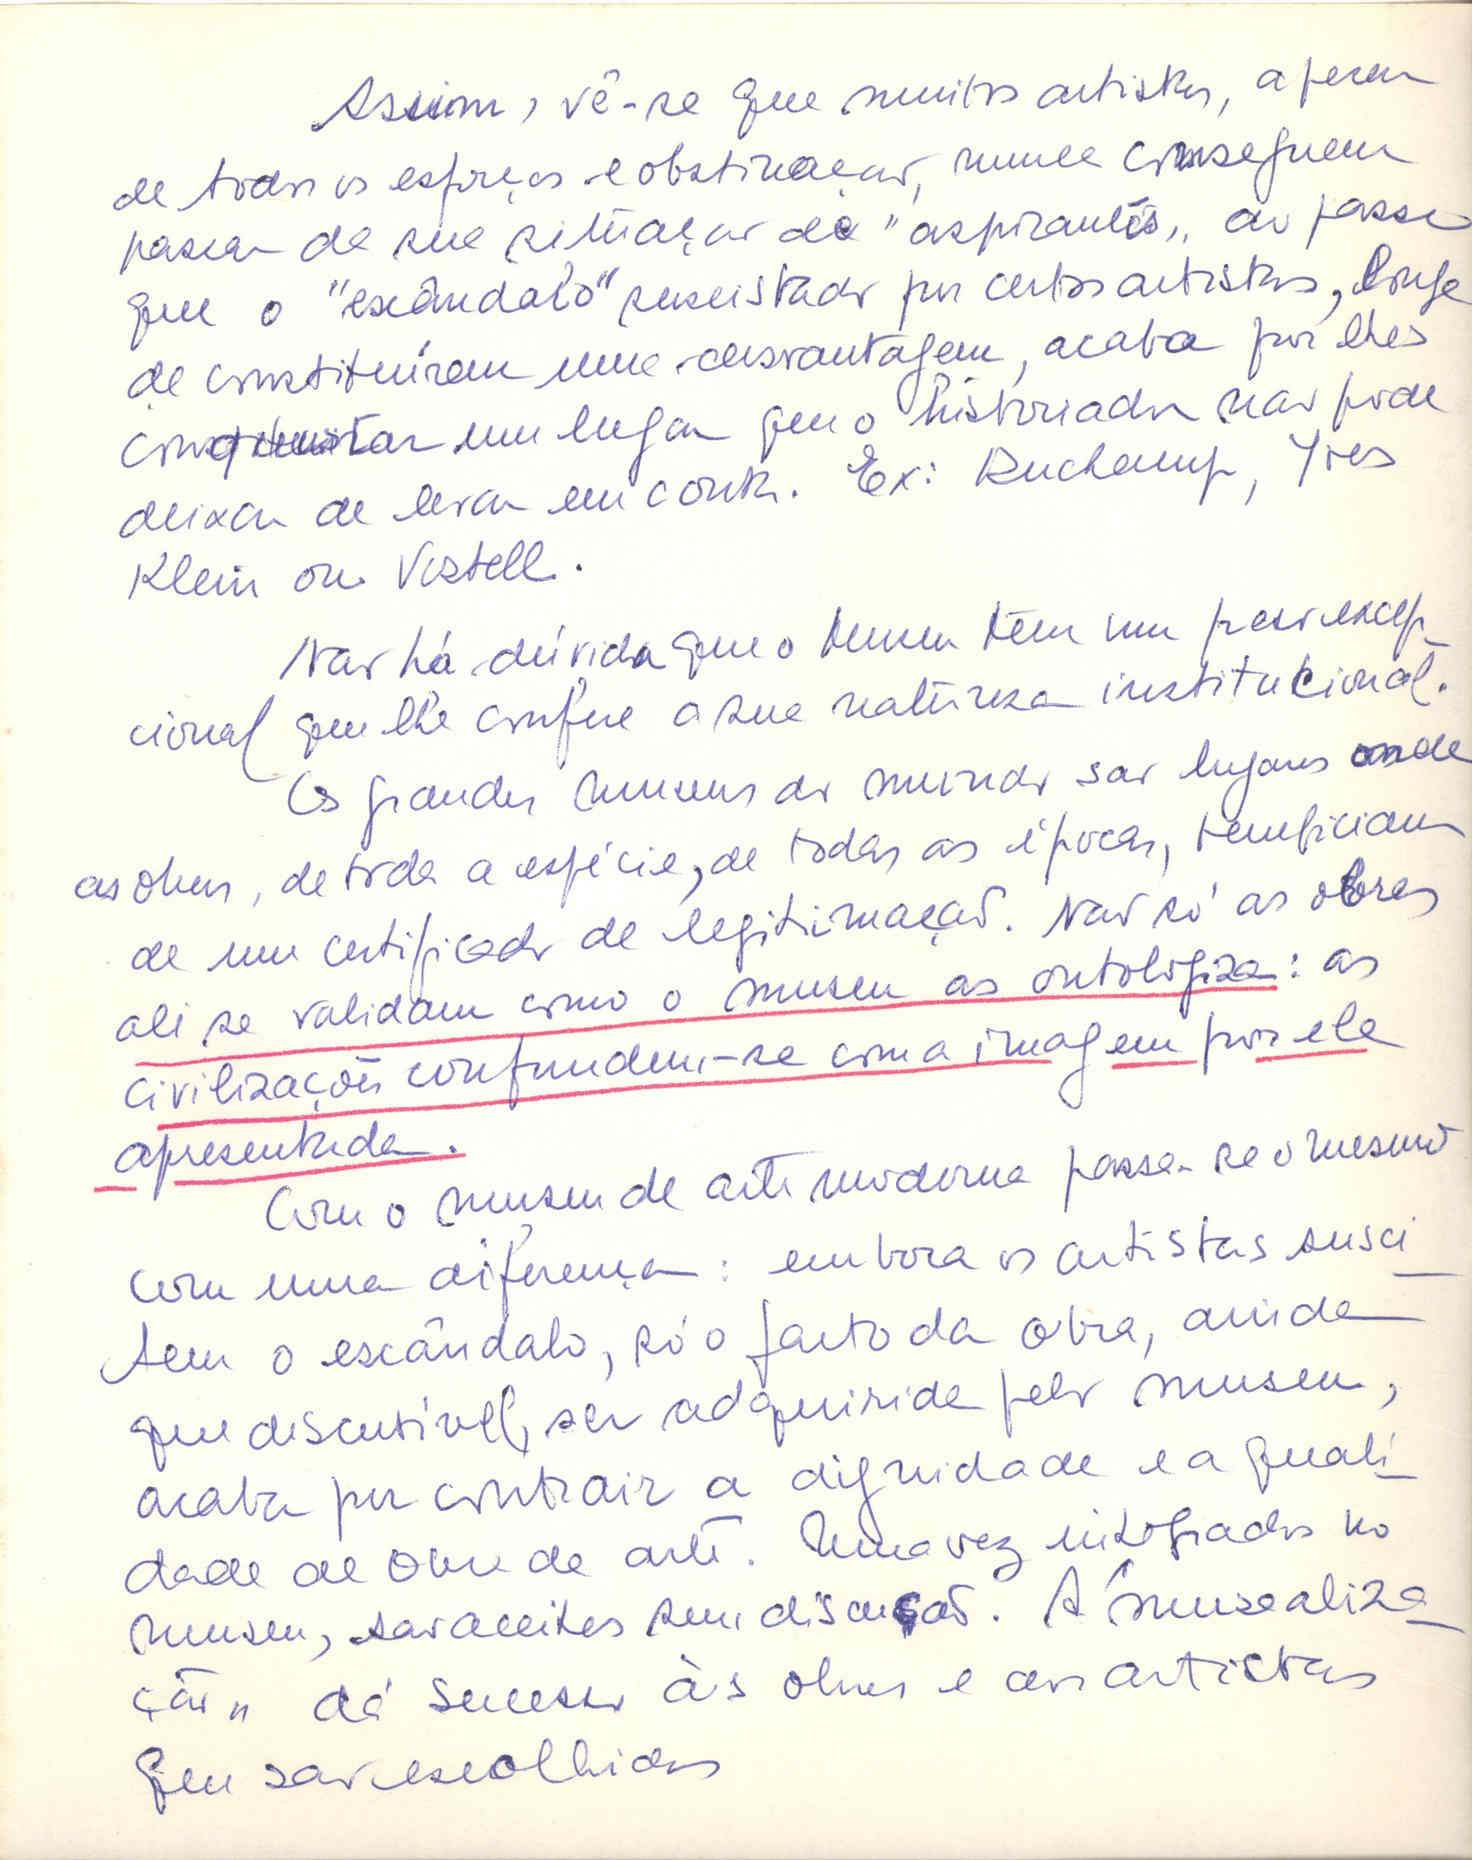 Assim, vê-se que muitos artistas, apesar
de todos os esforços e obstinação, nunca conseguem
passar da sua situação de "aspirantes", ao passo
que o "escândalo" suscistado por certos artistas, longe
de constituírem uma desvantagem, acaba por lhes
conquistar um lugar que o historiador não pode
deixar de levar em conta. Ex: Duchamp, Yves
Klein ou Vostell.
Não há dúvida que o museu têm um peso excep-
cional que lhe confere a sua natureza institucional.
Os grandes museus do mundo são lugares onde
as obras, de toda a espécie, de todas as épocas, beneficiam
de um certificado de legitimação. Não só as obras
ali se validam como o museu as ontologiza: as
civilizações confundem-se com a imagem por ele
apresentada.
Com o museu de arte moderna passa-se o mesmo
com uma diferença: embora os artistas susci-
tem o escândalo, só o facto da obra, ainda
que discutível, ser adquirida pelo museu,
acaba por contrair a dignidade e a quali-
dade de obra de arte. Uma vez integrados no
museu, são aceites sem discussão. A "musealiza-
ção" dá sucesso às obras e aos artistas
que são escolhidos